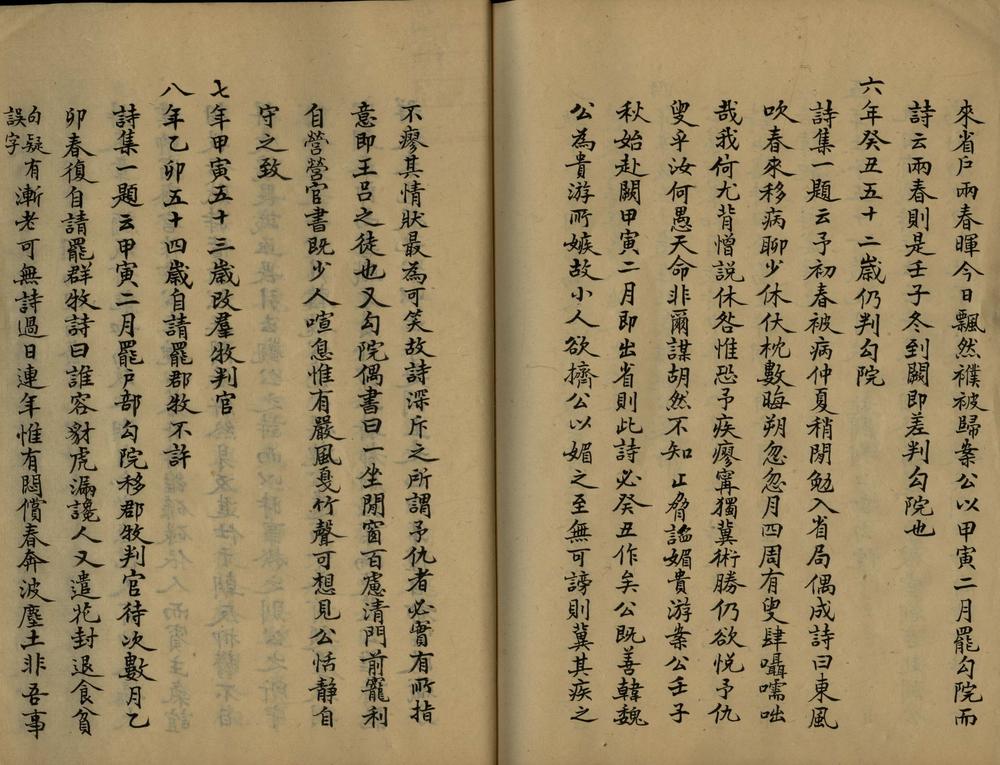 來省戶兩春暉今日飄然襆被歸案公以甲寅二月罷勾院而
詩云兩春則是壬子冬到闕即差判勾院也
六年癸丑五十二歲仍判勾院
詩集一題云予初春被病仲夏稍閒勉入省局偶成詩曰東風
吹春來移病聊少休伏枕數晦朔忽忽月四周有叟肆囁嚅咄
哉我何尤背憎説休咎惟恐予疾瘳寗獨冀術勝仍欲悦予仇
叟乎汝何愚天命非爾謀胡然不知止脅諡媚貴游案公壬子
秋始赴闕甲寅二月即出省則此詩必癸丑作矣公既善韓魏
公為貴游所嫉故小人欲擠公以媚之至無可謗則冀其疾之
不瘳其情狀最為可笑故詩深斥之所謂予仇者必實有所指
意即王吕之徒也又勾院偶書曰一坐閒窗百慮清門前寵利
自營營官書既少人喧息惟有嚴風戛竹聲可想見公恬静自
守之致
七年甲寅五十三歲改羣牧判官
八年乙卯五十四歲自請罷郡牧不許
詩集一題云甲寅二月罷户部勾院移郡牧判官待次數月乙
卯春復自請罷群牧詩曰誰容豺虎漏讒人又遣花封退食貧
句疑有
誤字
漸老可無詩過日連年惟有悶償春奔波塵土非吾事